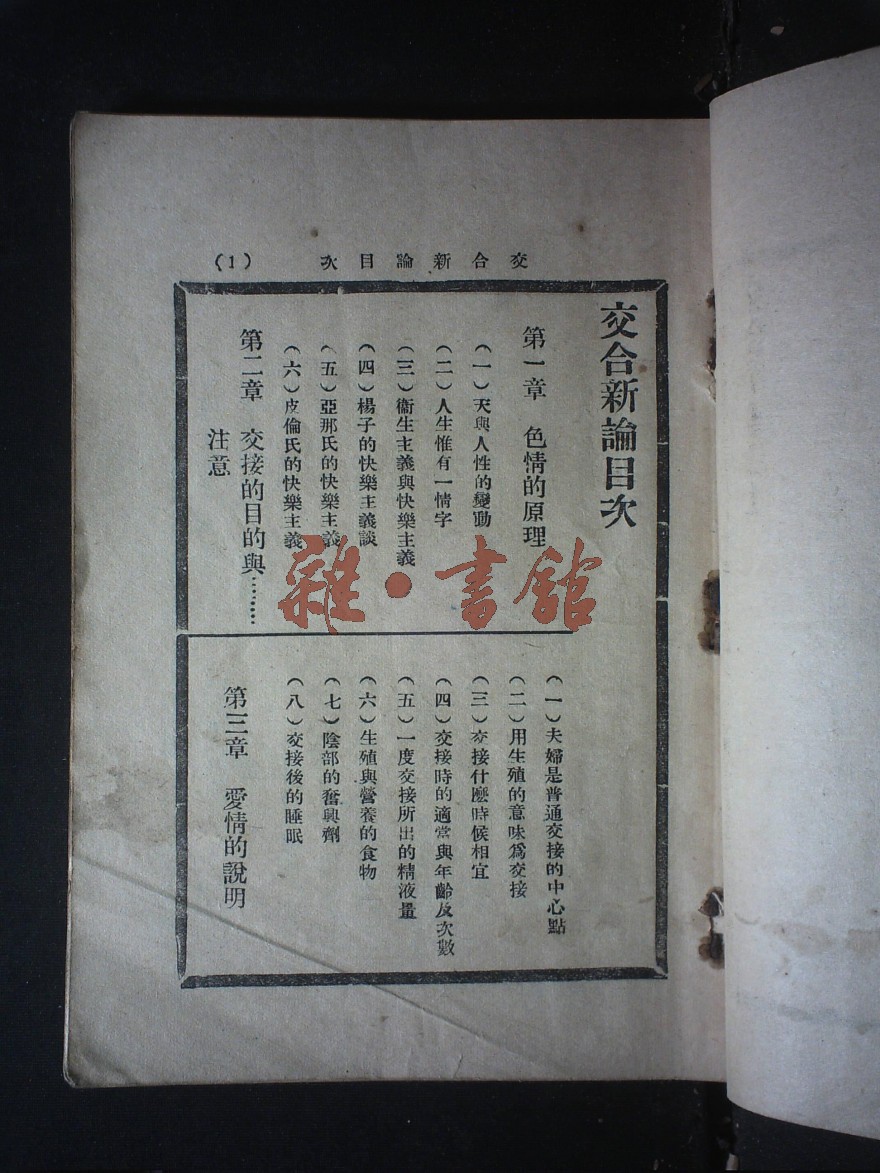 交合新論目次
(1)
交合新論目次
第一章 色情的原理
(一)天與人性的變動
(二)人生惟有一情字
(三)衞生主義與快樂主義
(四)楊子的快樂主義談
(五)亞那氏的快樂主義
(六)皮倫氏的快樂主義
第二章 交接的目的與………
注意
(一)夫婦是普通交接的中心點
(二)用生殖的意味爲交接
(三)交接什麽時候相宜
(四)交接時的適當與年齡及次數
(五)一度交接所出的精液量
(六)生殖與營養的食物
(七)陰部的奮興劑
(八)交接後的睡眠
第三章 愛情的說明
雜·書館